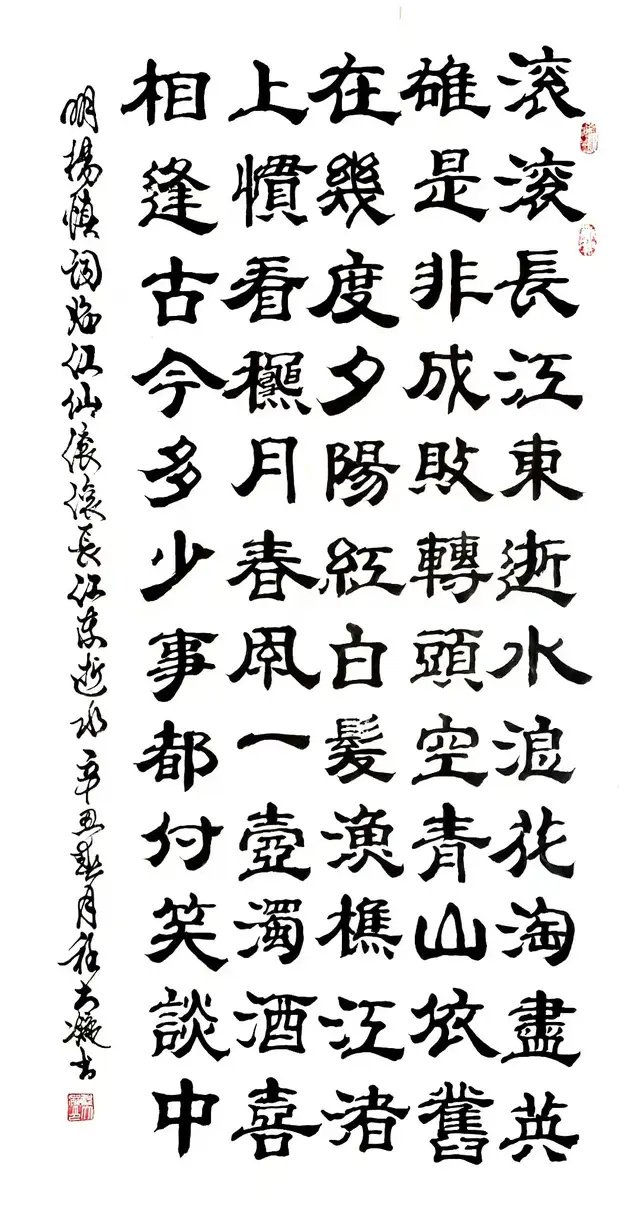 滚滚長江東逝水浪花淘盡英
雄是非成敗轉頭空青山依舊
在幾度夕陽紅白髮漁樵江渚
上慣看櫬月春風一壺濁酒喜
相逢古今多少事都付笑談中
明楊慎詞臨江仙滚滚長江東逝水辛丑春月程大凝書